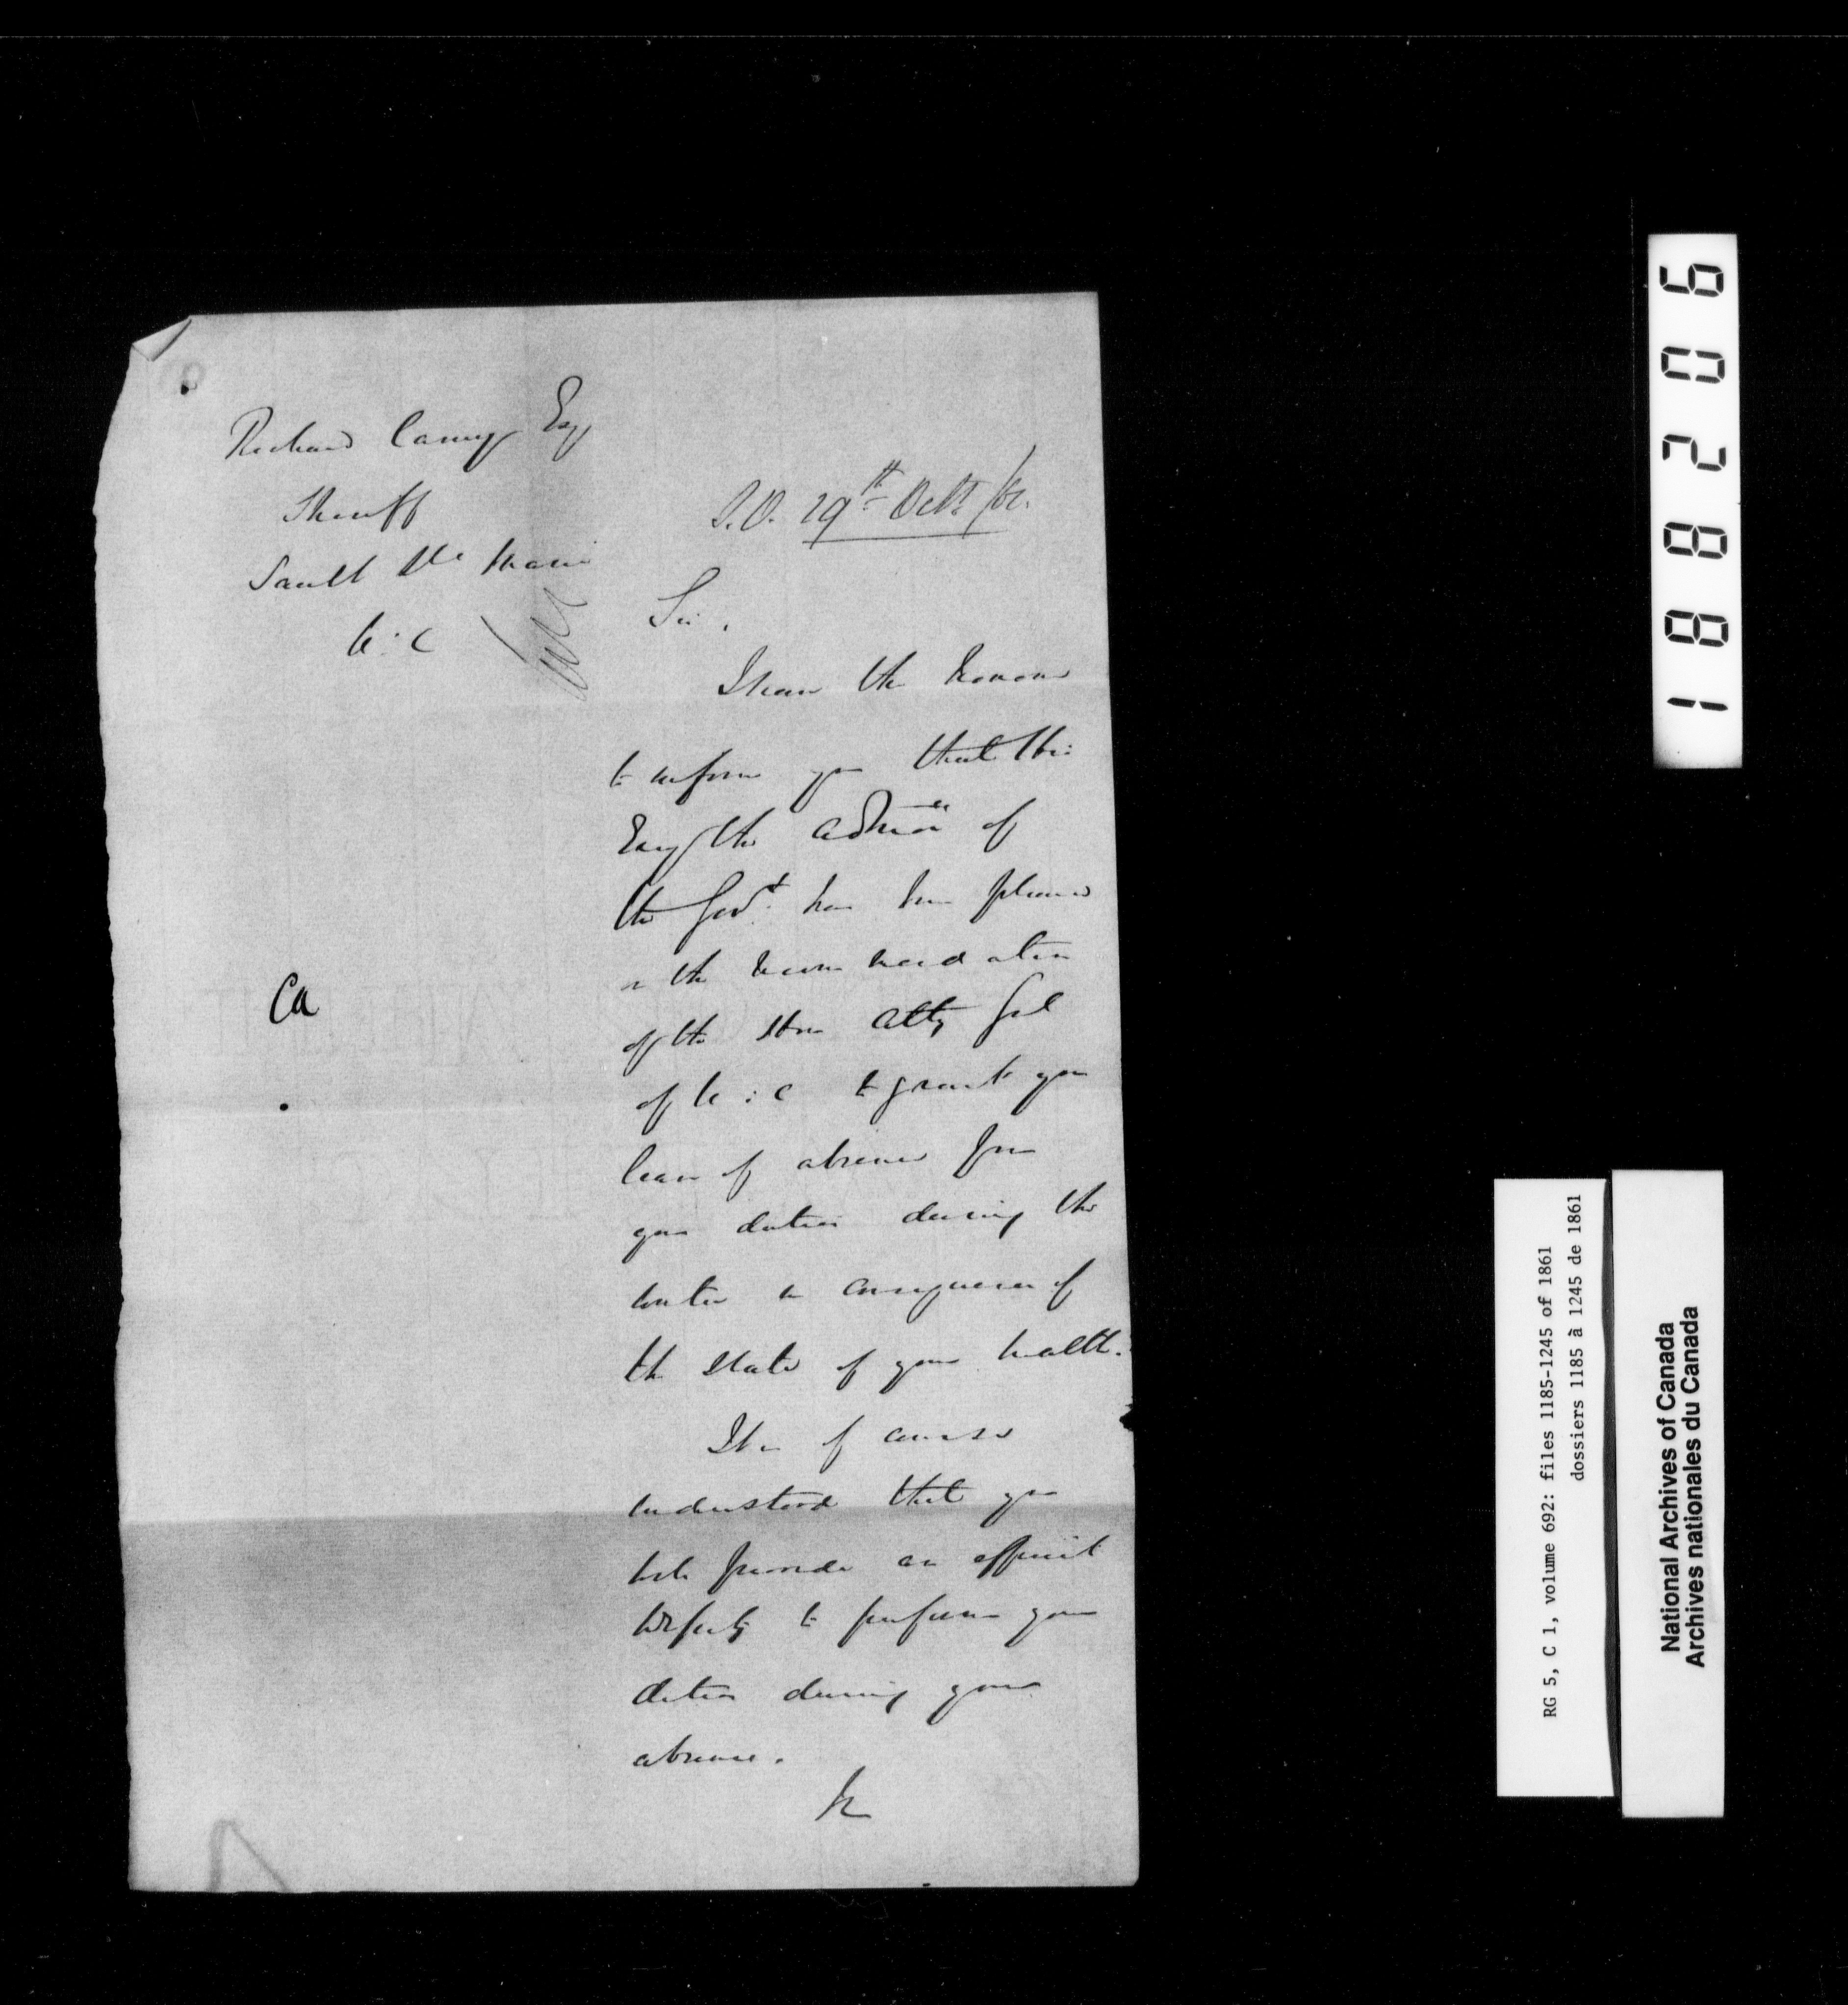 Richard Carney Esq
Sheriff
Sault Ste Marie
U:C
S.O. 29th Octr /61.
Sir,
I have the honour
to inform you that His
Excy the Admor of
the Govt. has been pleased
on the recommendation
of the Hon Atty Genl
of U:C to grant you
leave of absence from
your duties during the
winter in consequence of
the state of your health.
It is of course
understood that you
will provide an efficient
Deputy to perform your
duties during your
absence.
Ca
188206
RG 5, C 1, volume 692: files 1185-1245 of 1861
dossiers 1185 à 1245 de 1861
National Archives of Canada
Archives nationales du Canada